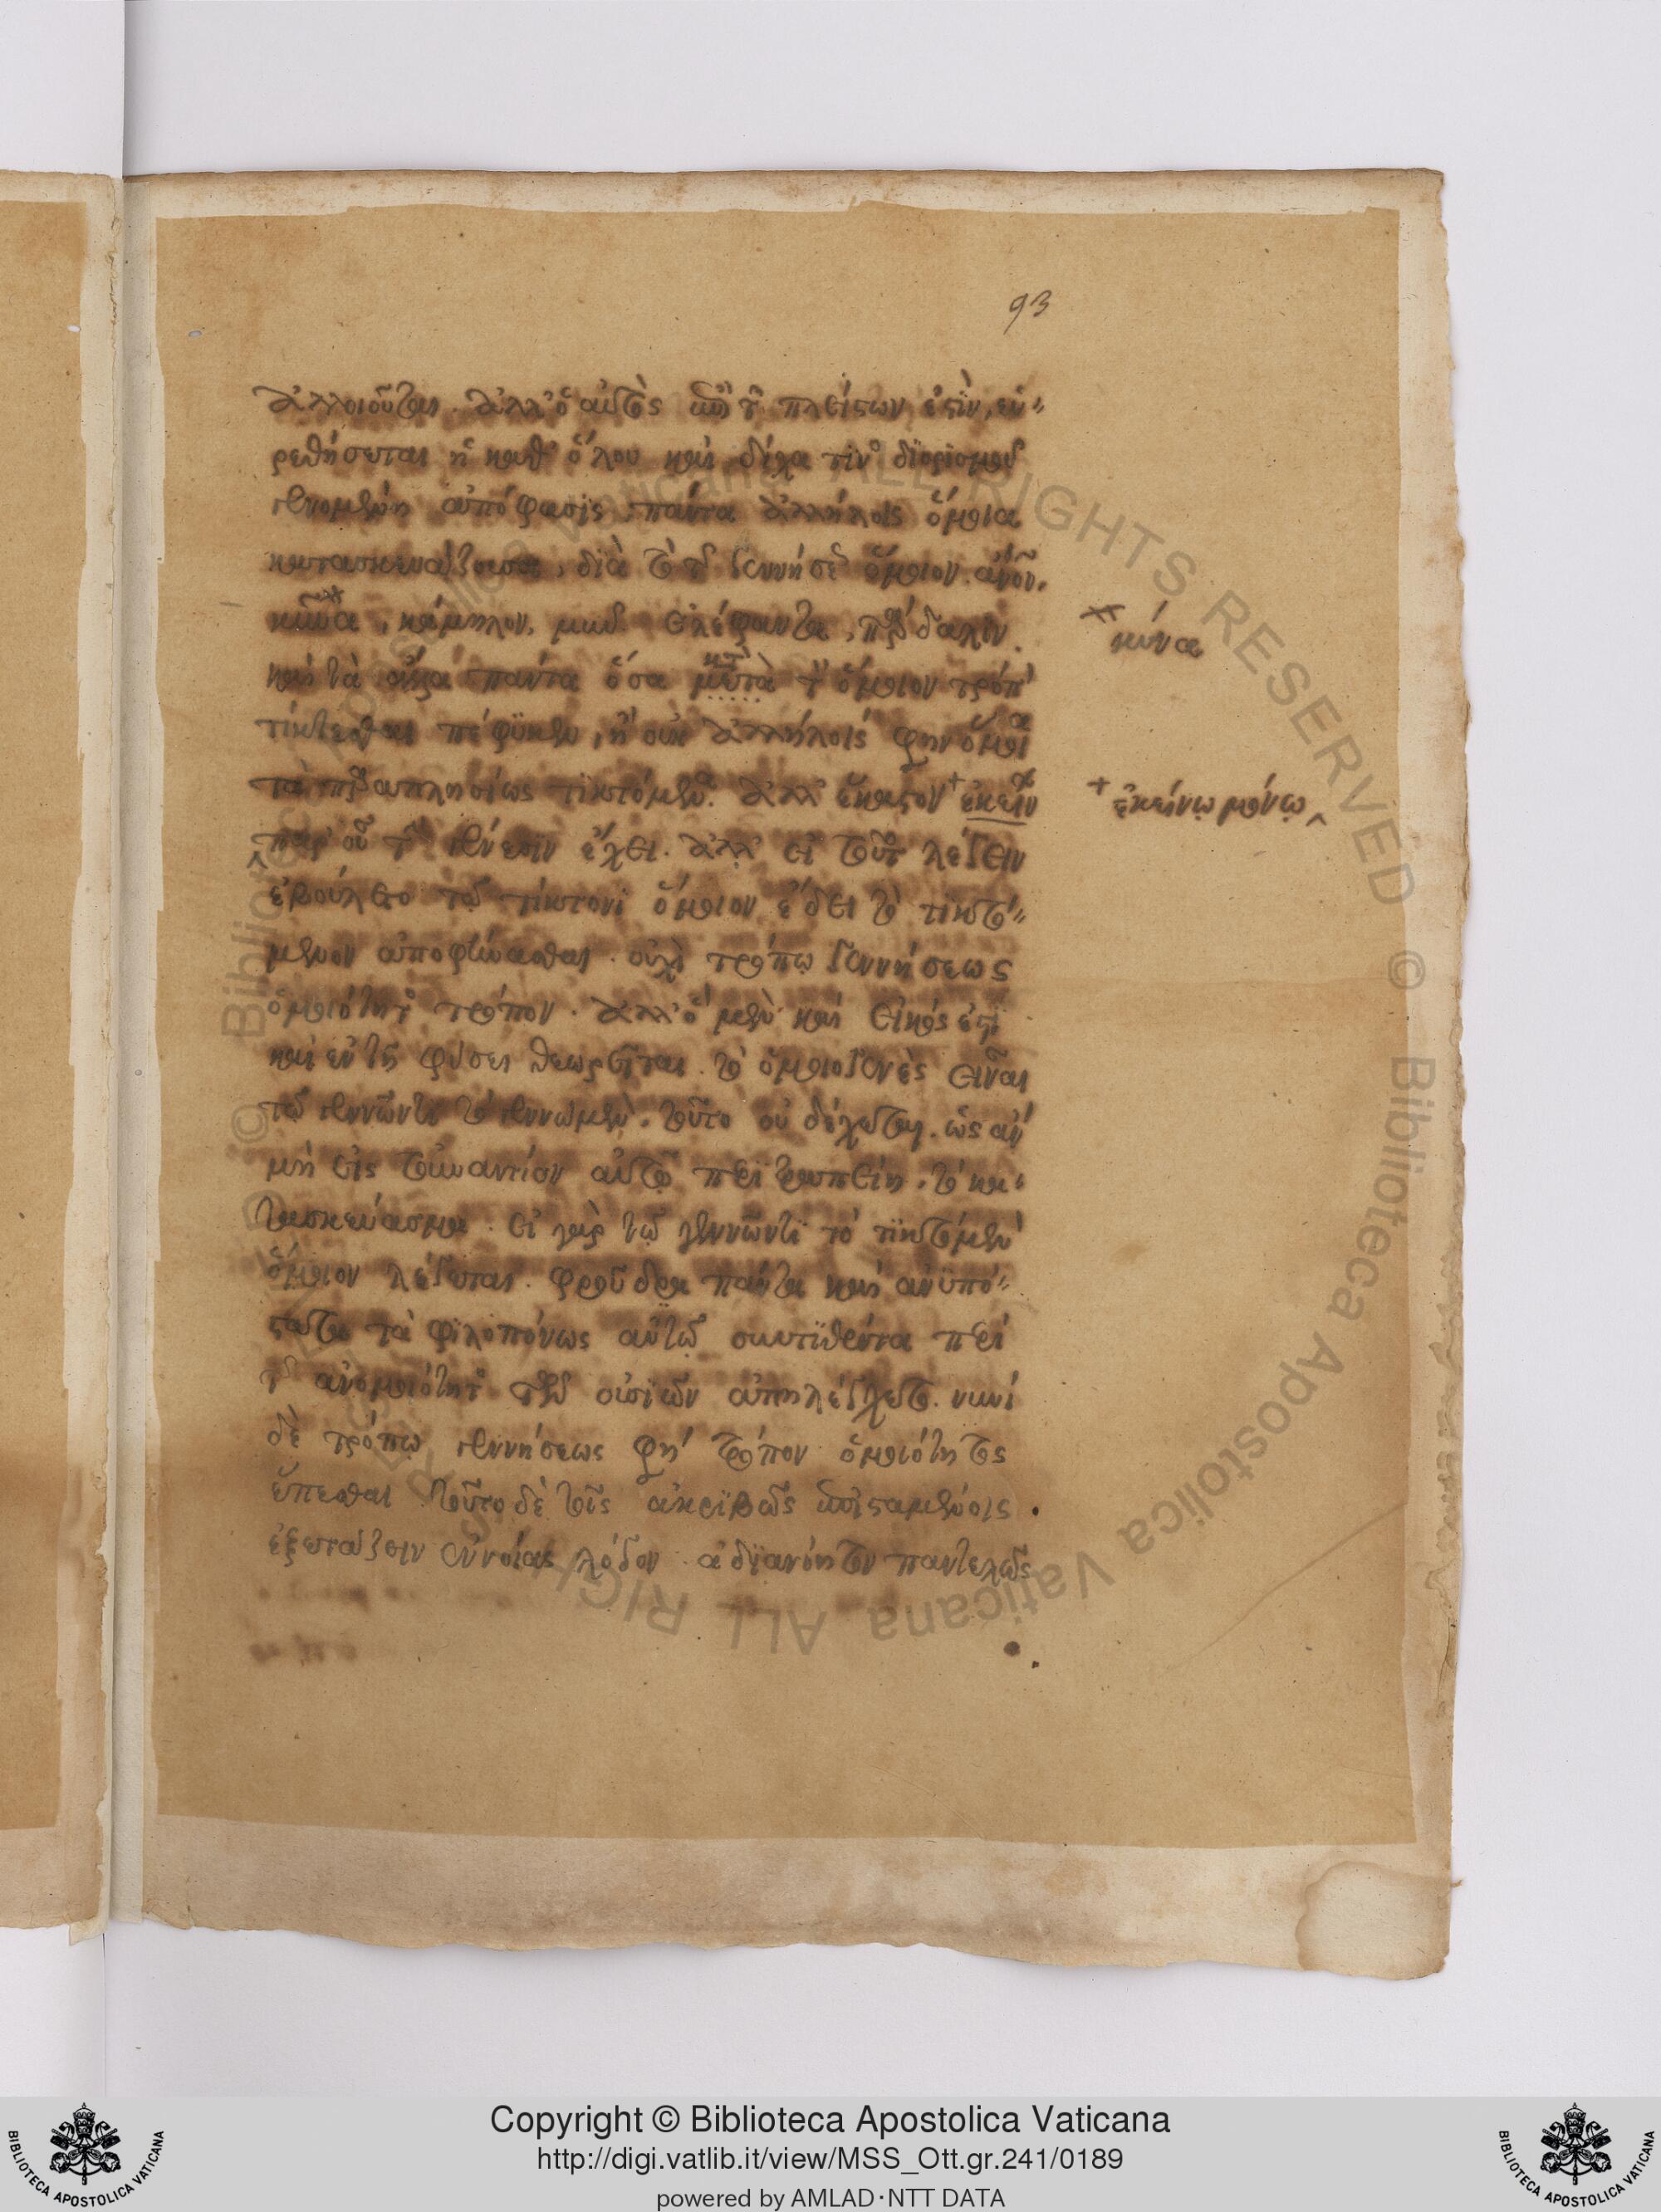 93
ἀλλοιοῦται. ἀλλ' ὁ αὐτὸς ἐπὶ τῶν πλείστων ἐστὶν, εὑ-
ρεθήσεται ἡ καθ' ὅλου καὶ δίχα τινὸς διορισμοῦ
γενομένη ἀπόφασις, πάντα ἀλλήλοις ὅμοια
κατασκευάζουσα, διὰ τὸ τῆς γεννήσεως ὅμοιον. ἄνθρωπον,
κύνα, κάμηλον, μῦν, ἐλέφαντα, πάρδαλιν.
καὶ τὰ ἄλλα πάντα ὅσα μετὰ τὸν ὅμοιον τρόπον
τίκτεσθαι πέφυκεν, ἢ οὐκ ἀλλήλοις φησὶν ὅμοια
τὰ παραπλησίως τικτόμενα. ἀλλ' ἕκαστον ἐκείνω
παρ' οὗ τὴν γένεσιν ἔχει. ἀλλ' εἰ τοῦτο λέγειν
ἐβούλετο τῷ τίκτοντι ὅμοιον ἔδει τὸ τικτό-
μενον ἀποφήνασθαι. οὐχὶ τρόπῳ γεννήσεως
ὁμοιότητος τρόπον. ἀλλ' ὃ μὲν καὶ εἰκός ἐστι
καὶ ἐν τῇ φύσει θεωρεῖται. τὸ ὁμοιογενὲς εἶναι
τῷ γεννῶντι τὸ γεννώμενον. τοῦτο οὐ δέχεται. ὡς ἂν
μὴ εἰς τοὐναντίον αὐτῷ περιτραπείη. τὸ κα-
τασκεύασμα. εἰ γὰρ τῷ γεννῶντι τὸ τικτόμενον
ὅμοιον λέγεται. φροῦδα πάντα καὶ ἀνυπό-
στατα τὰ φιλοπόνως αὐτῷ συντιθέντα περὶ
τῆς ἀνομοιότητος τῶν οὐσιῶν ἀπηλέγχετο. νυνὶ
δὲ τρόπῳ γεννήσεως φησὶ τρόπον ὁμοιότητος
ἕπεσθαι τοῦτο δὲ τοῖς ἀκριβῶς ἐπισταμένοις.
ἐξετάζειν ἐννοίας λόγον ἀδιανόητον παντελῶς
κύνα
ἐκείνῳ μόνῳ
Copyright © Biblioteca Apostolica Vaticana
http://digi.vatlib.it/view/MSS_Ott.gr.241/0189
powered by AMLAD·NTT DATA
BIBLIOTECA APOSTOLICA VATICANA
BIBLIOTECA APOSTOLICA VATICANA